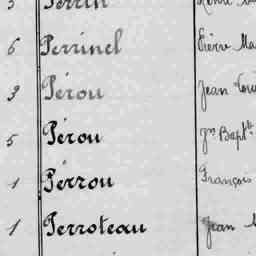 5 Perrin
6 Perrinel Pierre Ma
9 Pérou Jean Loui
5 Pérou Jn Baptte
1 Perrou François
1 Perroteau Jean